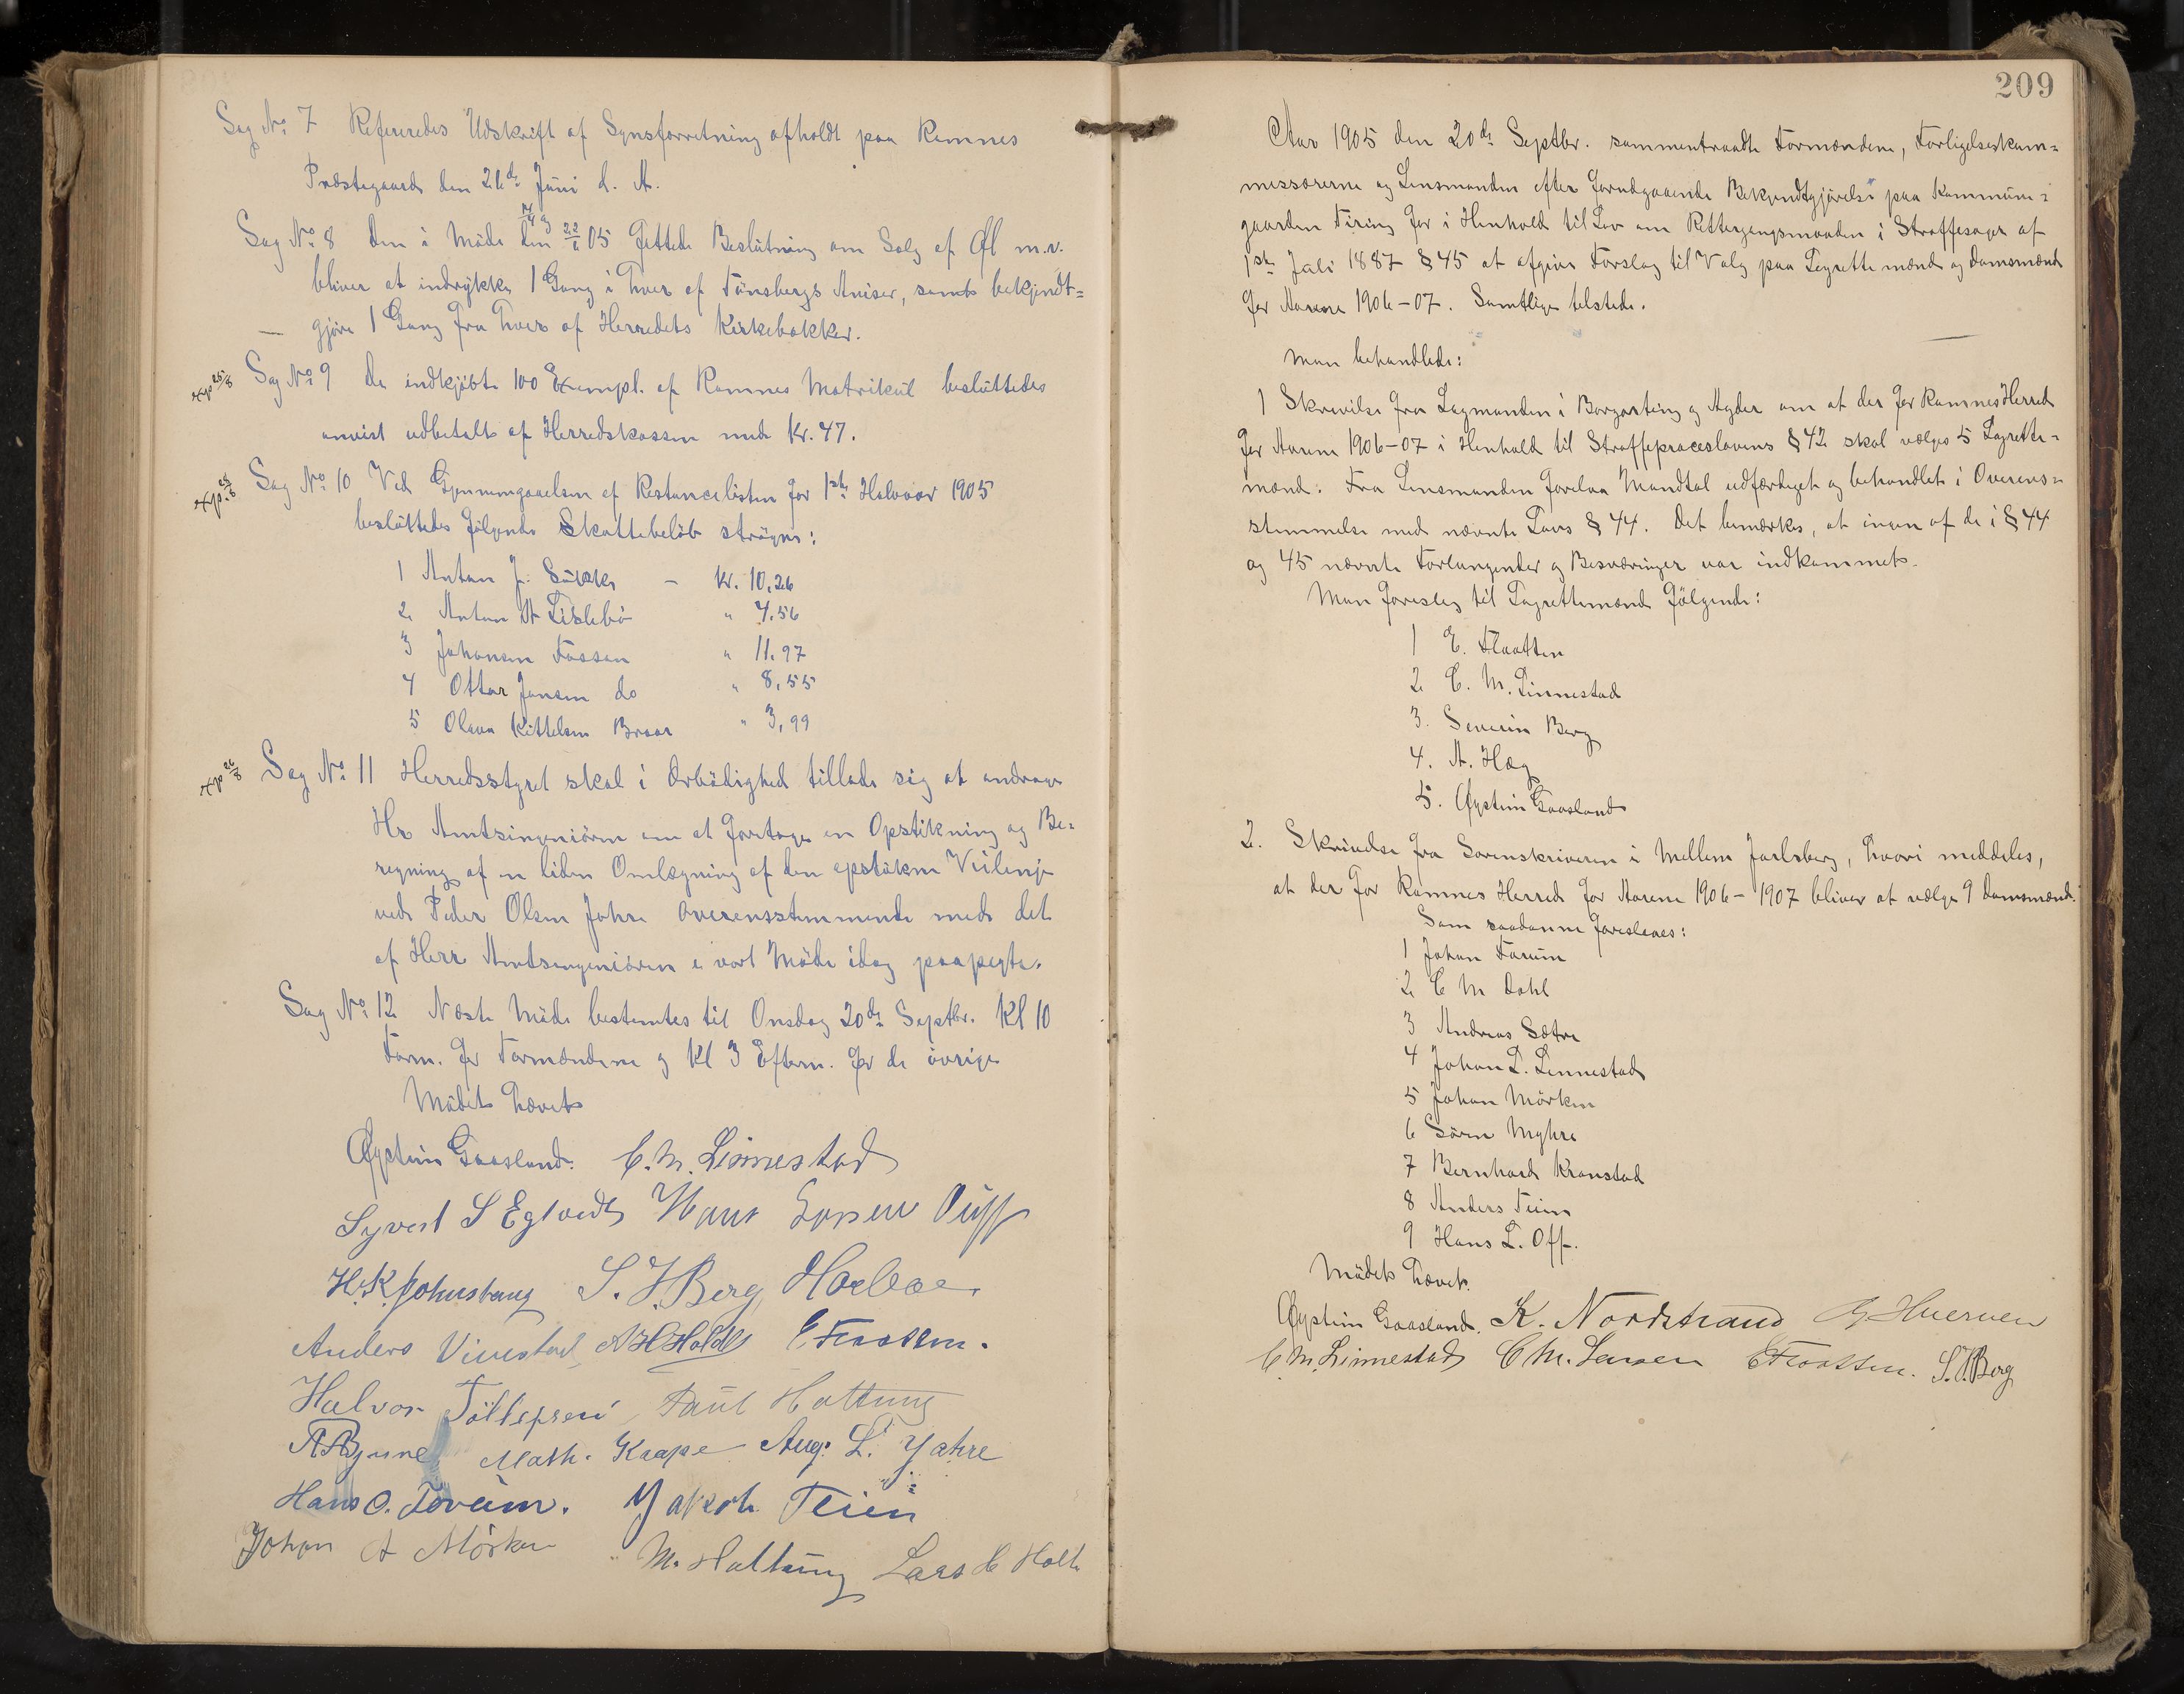 Sag No 7 Refereredes Udskrift af Synsforretning afholdt paa Ramnes
Præstegaard den 26de Juni d. A.
Sag No 8 den i Møde den 22/6 05 fattede Beslutning om Salg af Øl m.v.
bliver at indrykke 1 Gang i hver af Tønsbergs Aviser, samt bekjendt=
gjøre 1 Gang fra hver af Herredets Kirkebakker.
exp 25/8 Sag No 9 De indkjøbte 100 Exempl. af Ramnes Matrikul besluttedes
anvist udbetalt af Herredskassen med Kr. 47.
exp. Sag No 10 Ved Gjennemgaaelsen af Restancelisten for 1ste Halvaar 1905
besluttedes følgende Skattebeløb strøgne:
1 Anton J. – Kr. 10,26
2 Anton A Lislebø " 4.56
3 Johansen Fossan " 11.97
4 Ottar Jensen do " 8,55
5 Olava Kittelsen Braar " 3,99
exp 26/8 Sag No 11 Herredsstyret skal i Ærbødighed tillade sig at andrage
Hr Amtsingeniøren om at foretage en Opstikning og Be=
regning af en liden Omlægning af den opstukne Veilinje
ved Peder Olsen Jahre overensstemmende med det
af Herr Amtsingeniøren i vort Møde idag paapegte.
Sag No 12 Næste Møde bestemtes til Onsdag 20de Septbr. Kl 10
Form. for Formændene og Kl 3 Efterm. for de øvrige
Mødet hævet
Øystein Gaasland. C. M. Linnestad
Syvert S Eglvedt Hans Larsen
H. K. Johnsbang S. J. Berg
Anders Vivestad A H Holdt E Flaatten.
Halvor Tollefsen Paul Hattung
A Bjune Math. Kaape Aug. L. Jahre
Hans O. Forum. Jakob Teien
Johan A Mørken M. Haltung Lars H Holt
209
Aar 1905 den 20de Septbr. sammentraadte Formændene, Forligelseskom=
missærerne og Lensmanden efter forudgaaende Bekjendtgjørelse paa Kommune=
gaarden Firing for i Henhold til Lov om Rettergangsmaaden i Straffesager af
1ste Juli 1887 § 45 at afgive Forslag til Valg paa Lagrettemænd og Domsmænd
for Aarene 1906–07. Samtlige tilstede.
Man behandlede:
1 Skrivelse fra Lagmanden i Borgarting og Agder om at der for Ramnes Herred
for Aarene 1906–07 i Henhold til Straffeproceslovens § 42 skal vælges 5 Lagrette=
mænd. Fra Lensmanden forelaa Mandtal udfærdiget og behandlet i Overens=
stemmelse med nævnte Lovs § 44. Det bemærkes, at ingen af de i § 44
og 45 nævnte Forlangender og Besværinger var indkommet.
Man foreslog til Lagrettemænd følgende:
1 E. Flaatten
2 C. M. Linnestad
3. Severin Berg
4. A. Høg
5. Øystein Gaasland
2. Skrivelse fra Sorenskriveren i Mellem Jarlsberg, hvori meddeles,
at der for Ramnes Herred for Aarene 1906–1907 bliver at vælge 9 Domsmænd.
Som saadanne foresloges:
1 Johan Forum
2 C M Dahl
3 Andreas Sætre
4 Johan L. Linnestad
5 Johan Mørken
6 Søren Myhre
7 Bernhard Kronstad
8 Anders Teien
9 Hans L. Off.
Mødet hævet.
Øystein Gaasland. K. Nordstrand Huerven
C. M. Linnestad C M. Larsen E Flaatten. S. J. Berg